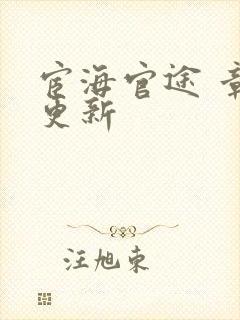 宦海官途 章
更新
汪旭东